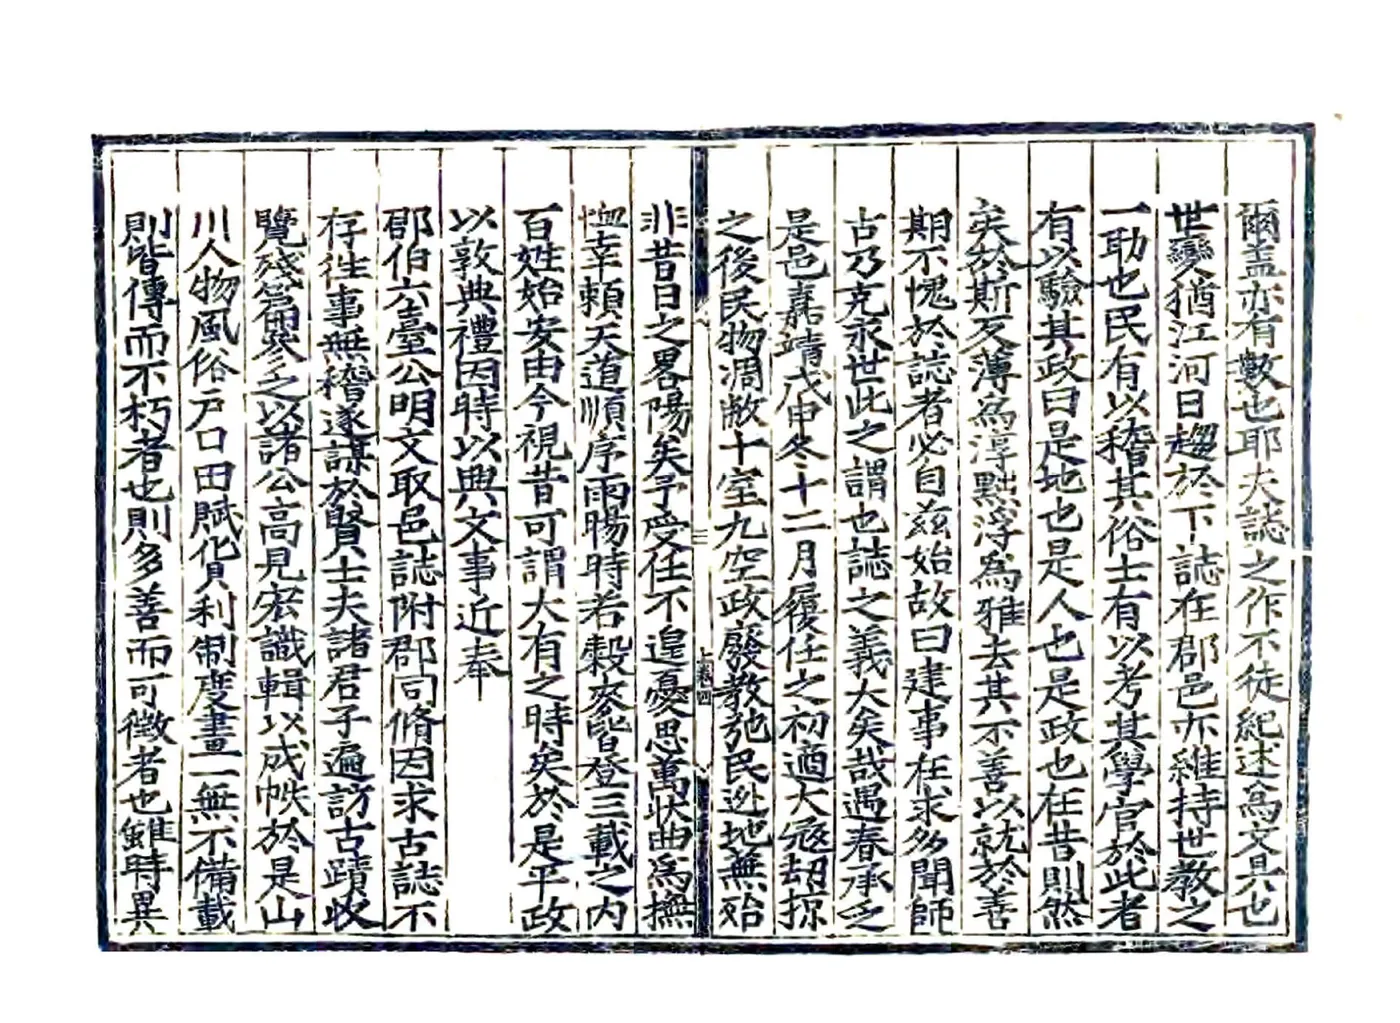 爾蓋亦有數也耶夫誌之作不徒紀述為文具也
世變猶江河日趨於下誌在郡邑亦維持世教之
一助也民有以稽其俗士有以考其學官於此者
有以驗其政曰是地也是人也是政也在昔則然
矣於斯反薄為淳黜浮為雅去其不善以就於善
期不愧於誌者必自茲始故曰建事在求多聞師
古乃克永世此之謂也誌之義大矣哉遇春承乏
是邑嘉靖戊申冬十二月履任之初適大寇刼掠
之後民物凋敝十室九空政廢教弛民迯地無殆
非昔日之畧陽矣予受任不遑憂思萬狀曲為撫
恤幸頼天道順序雨暘時若糓麥皆登三載之內
百姓始安由今視昔可謂大有之時矣於是平政
以敦典禮因時以興文事近奉
郡伯六臺公明文取邑誌附郡同脩因求古誌不
存徃事無稽遂謀於賢士夫諸君子遍訪古蹟收
覽殘篇叅之以諸公高見宏識輯以成帙於是山
川人物風俗户口田賦貨利制度畫一無不備載
則皆傳而不朽者也則多善而可徵者也雖時異
上卷四
三